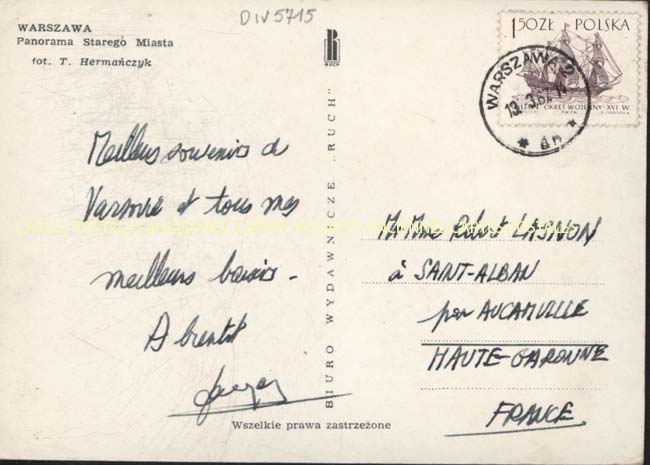 DIV5715
WARSZAWA
Panorama Starego Miasta
fot. T. Hermańczyk
RUCH
1,50ZŁ POLSKA
OKRĘT WOJENNY XVI W.
WARSZAWA 2
BIURO WYDAWNICZE „RUCH"
Meilleurs souvenirs de
Varsovie et tous mes
meilleurs baisers -
A bientôt
M. Mme Robert LASNON
à SAINT-ALBAN
par AUCAMVILLE
HAUTE-GARONNE
FRANCE
Wszelkie prawa zastrzeżone